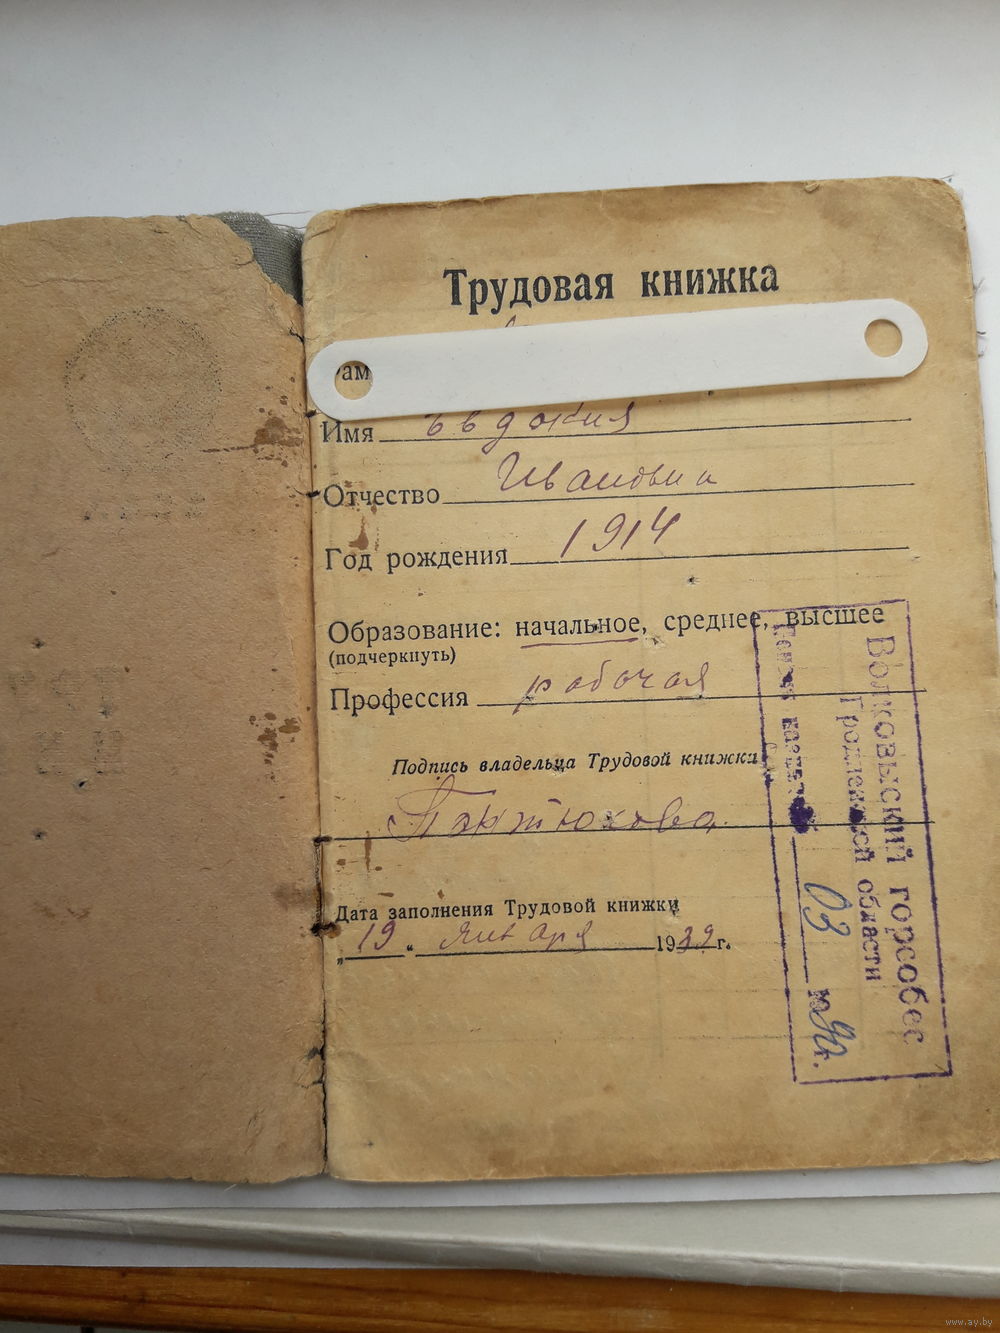 Трудовая книжка
ам
Имя Евдокия
Отчество Ивановна
Год рождения 1914
Образование: начальное, среднее, высшее
(подчеркнуть)
Профессия рабочая
Подпись владельца Трудовой книжки
Дата заполнения Трудовой книжки
„19“ января 1939 г.
Волковыский горсобес
Гродненской области
03
92 г.
www.ay.by